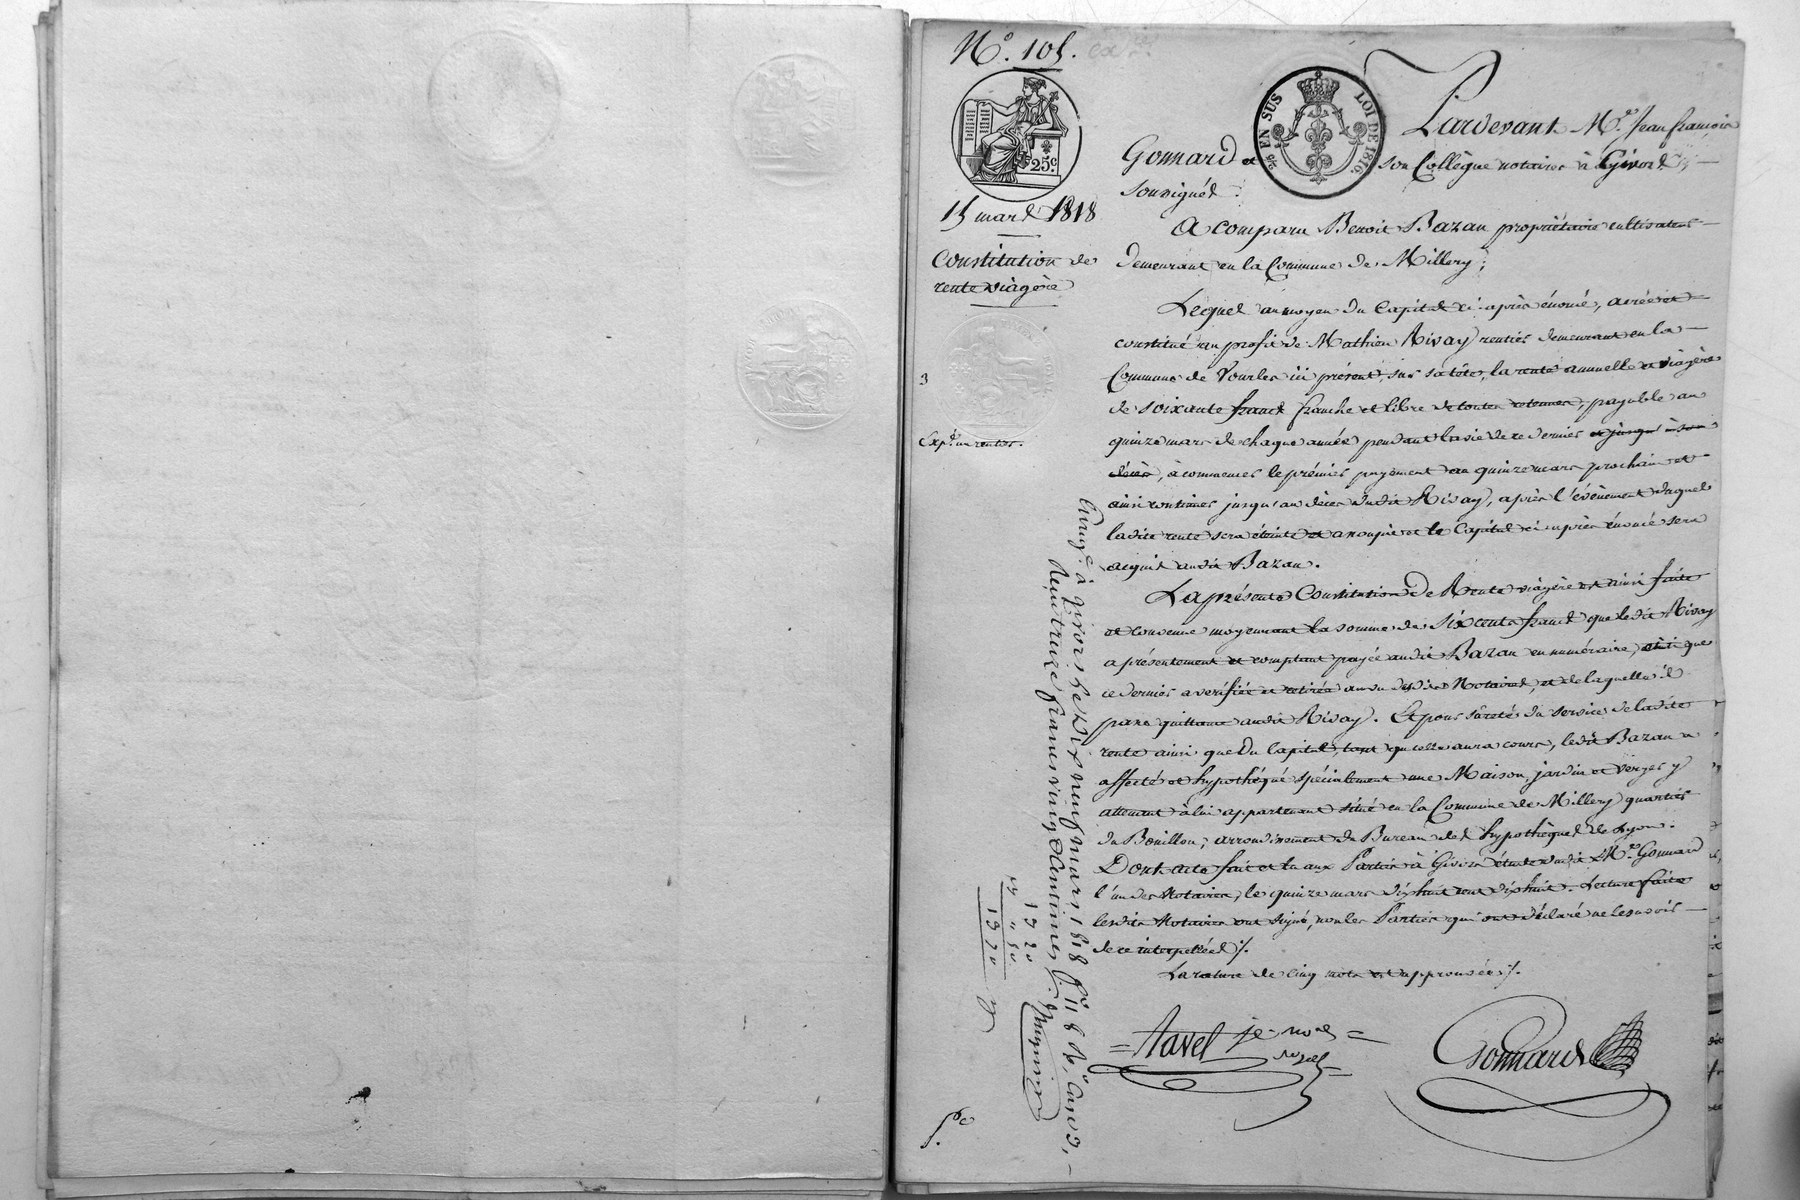 N.º 105.
25 c.
EN SUS
LOI DE 1816.
15 mars 1818
Constitution de
rente viagère
3
Exp. un rentier.
Pardevant M.e Jean françois
Gonnard et son Collègue notaires à Givors
soussignés.
A comparu Benoit Bazan propriétaire cultivateur
demeurant en la Commune de Millery;
Lequel au moyen du Capital ci-après énoncé, a créé et
constitué au profit de Mathieu Rivay rentier demeurant en la
Commune de Vourles ici présent, sur sa tête, la rente annuelle et viagère
de soixante francs franche et libre de toutes retenues, payable au
quinze mars de chaque année pendant la vie de ce dernier et jusqu'à son
décès, à commencer le prémier payement au quinze mars prochain et
ainsi continuer jusqu'au décès dudit Rivay, après l'évènement duquel
ladite rente sera éteinte et amortie et le Capital ci-après énoncé sera
acquis audit Bazan.
La présente Constitution de Rente viagère est ainsi faite
et convenue moyennant la somme de six cents francs que ledit Rivay
a présentement et comptant payée audit Bazan en numéraire, ainsi que
ce dernier a verifiée et retirée au vu desdits Notaires, et de laquelle il
passe quittance audit Rivay. Et pour sûreté du service de ladite
rente ainsi que du Capital, tant qu'elle aura cours, ledit Bazan a
affecté et hypothéqué spécialement une Maison, jardin et verger y
attenant à lui appartenant situé en la Commune de Millery quartier
du Bouillon, arrondissement du Bureau des hypothèques de Lyon.
Dont acte fait et lu aux Parties à Givors étude dudit M.e Gonnard
l'un des Notaires, le quinze mars dix huit cent dix huit. Lecture faite
lesdits Notaires ont signé, non les Parties qui ont déclaré ne le savoir
de ce interpellées ./.
La rature de cinq mots est approuvée ./.
Tavel
Gonnard
Enreg.é à Givors le dix neuf mars 1818 f.o 118 R.o Case 3,
Reçu treize francs vingt centimes
13 20
13 20